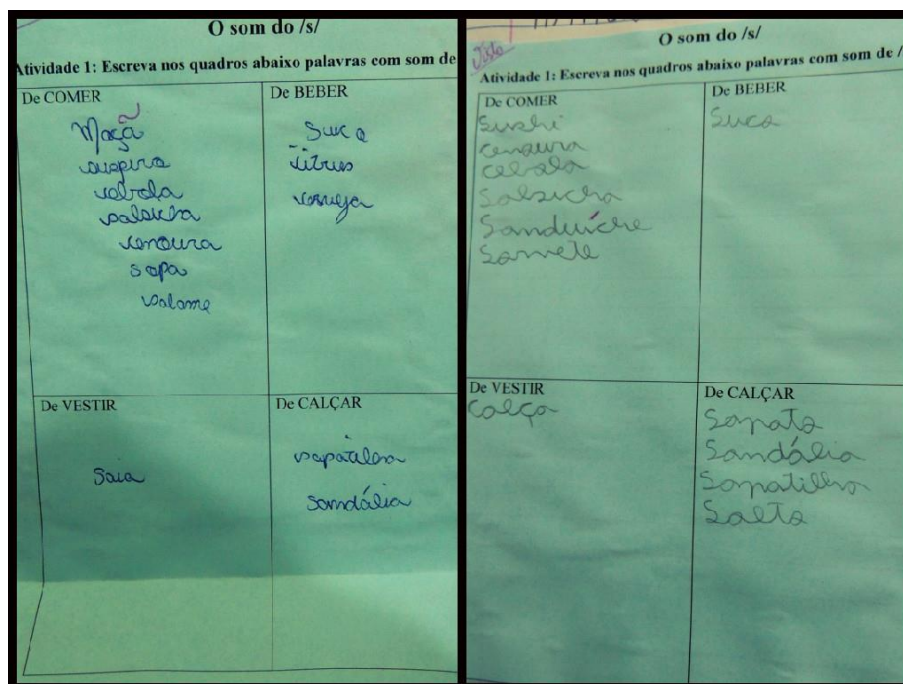 O som do /s/
Atividade 1: Escreva nos quadros abaixo palavras com som de
De COMER
Maçã
suspiro
cebola
salsicha
cenoura
sopa
salame
De BEBER
Suco
citrus
cerveja
De VESTIR
Saia
De CALÇAR
sapatilha
sandália
Visto
O som do /s/
Atividade 1: Escreva nos quadros abaixo palavras com som de /
De COMER
Sushi
cenoura
cebola
Salsicha
Sanduíche
Sorvete
De BEBER
Suco
De VESTIR
Calça
De CALÇAR
Sapato
Sandália
Sapatilha
Salto